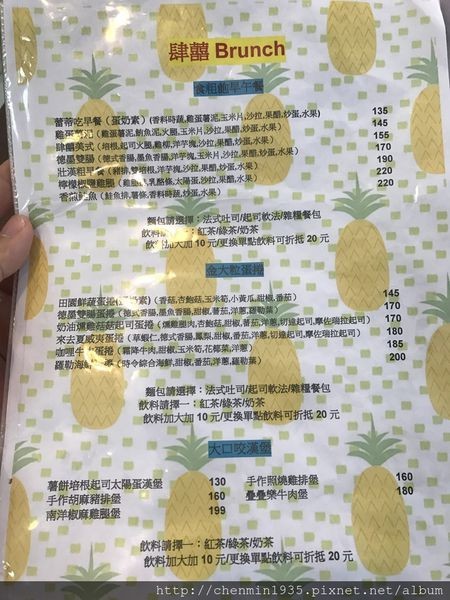 肆囍 Brunch
食粗飽早午餐
蕾蒂吃早餐(蛋奶素)(香料時蔬,雞蛋薯泥,玉米片,沙拉,果醋,炒蛋,水果) 135
雞蛋薯泥(雞蛋薯泥,鮪魚泥,火腿,玉米片,沙拉,果醋,炒蛋,水果) 145
肆囍美式(培根,起司火腿,雞柳,洋芋塊,沙拉,果醋,炒蛋,水果) 155
德墨雙腸(德式香腸,墨魚香腸,洋芋塊,沙拉,果醋,炒蛋,水果) 170
壯漢粗早餐(豬排,雙培根,洋芋塊,沙拉,果醋,炒蛋,水果) 190
檸檬椒鹽雞腿(雞腿排,乳酪條,太陽蛋,沙拉,果醋,水果) 220
香煎鮭魚(鮭魚排,薯條,香料時蔬,炒蛋,水果) 220
麵包請選擇：法式吐司/起司軟法/雜糧餐包
飲料請擇一：紅茶/綠茶/奶茶
飲料加大加 10 元/更換單點飲料可折抵 20 元
金大粒蛋捲
田園鮮蔬蛋捲(蛋奶素)(香菇,杏鮑菇,玉米筍,小黃瓜,甜椒,番茄) 145
德墨雙腸蛋捲(德式香腸,墨魚香腸,甜椒,蕃茄,洋蔥,羅勒葉) 170
奶油燻雞菇菇起司蛋捲(燻雞腿肉,杏鮑菇,甜椒,蕃茄,洋蔥,切達起司,摩佐瑞拉起司) 170
來去夏威夷蛋捲(草蝦仁,德式香腸,鳳梨,甜椒,蕃茄,洋蔥,切達起司,摩佐瑞拉起司) 180
咖哩牛肉蛋捲(霜降牛肉,甜椒,玉米筍,花椰菜,洋蔥) 185
羅勒海鮮蛋捲(時令綜合海鮮,甜椒,番茄,洋蔥,羅勒葉) 200
麵包請選擇：法式吐司/起司軟法/雜糧餐包
飲料請擇一：紅茶/綠茶/奶茶
飲料加大加 10 元/更換單點飲料可折抵 20 元
大口咬漢堡
薯餅培根起司太陽蛋漢堡 130 手作照燒雞排堡 160
手作胡麻豬排堡 160 疊疊樂牛肉堡 180
南洋椒麻雞腿堡 199
飲料請擇一：紅茶/綠茶/奶茶
飲料加大加 10 元/更換單點飲料可折抵 20 元
http://chenmin1935.pixnet.net/album